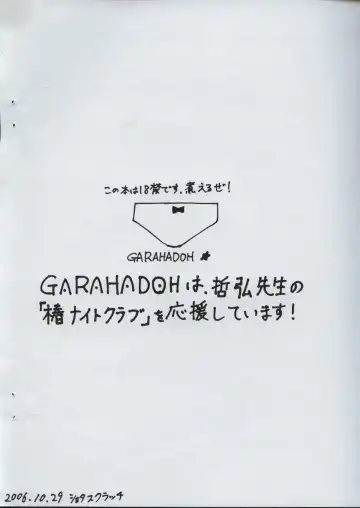 この本は18禁です、萌えるぜ!
GARAHADOH
GARAHADOHは、哲弘先生の
「椿ナイトクラブ」を応援しています!
2006.10.29 ショタスクラッチ